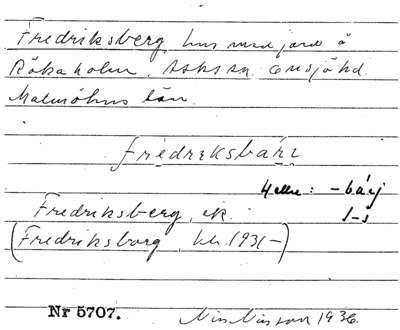 Fredriksberg, hus med jord å
Röka holm, Asks sn, Onsjö hd.
Malmöhus län.
fredriksbärj
Helle: - bárj
1-s
Fredriksberg, ek.
(Fredriksborg, kb. 1931-)
Nr 5707.
Nils Nilsson 1936.